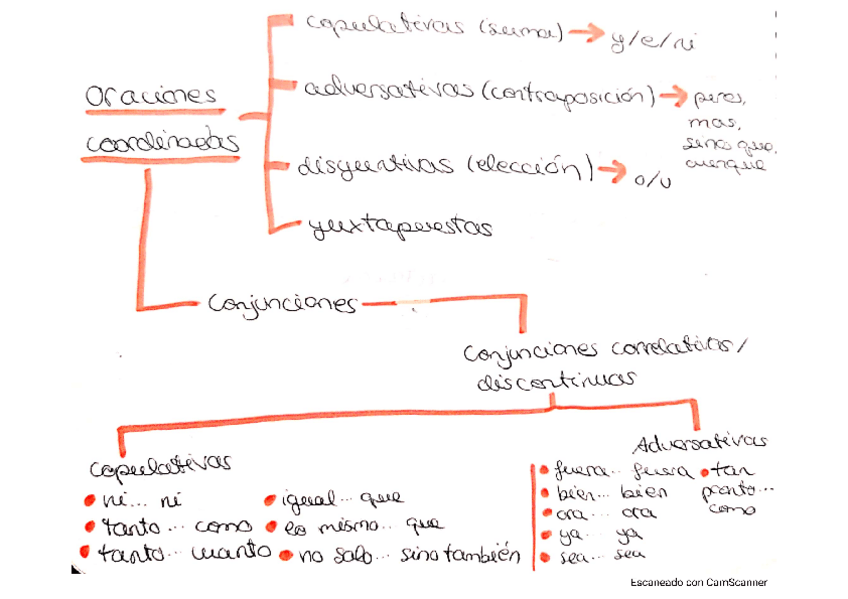 Oraciones
coordinadas
copulativas (suma) → y/e/ni
adversativas (contraposición) → pero,
mas,
sino que,
aunque
disyuntivas (elección) → o/u
yuxtapuestas
Conjunciones
Conjunciones correlativas/
discontinuas
Copulativas
• ni... ni
• tanto... como
• tanto... cuanto
• igual... que
• lo mismo... que
• no solo... sino también
Adversativas
• fuera... fuera
• bien... bien
• ora... ora
• ya... ya
• sea... sea
• tan
pronto...
como
Escaneado con CamScanner